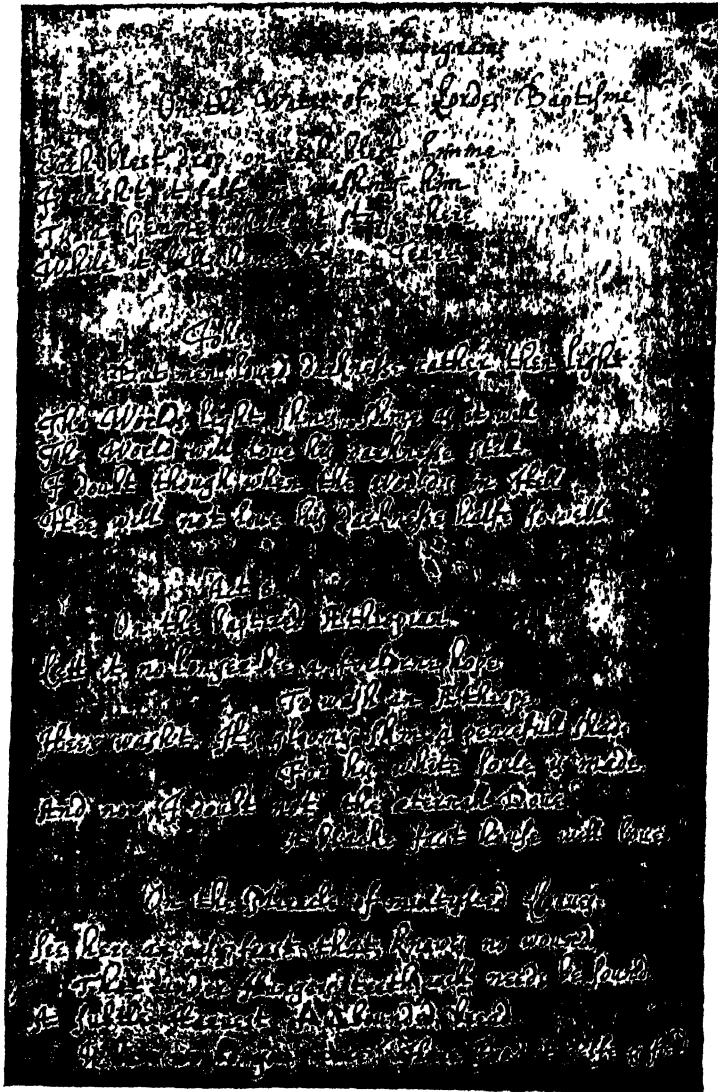 Epigrams
On the Water of our Lordes Baptisme
Each blest drop, on each blest Limme
Is washt it selfe in washing him
Tis a Gemme while it stayes here
While it falls hence tis a Teare
Joh.
But men loved darknesse rather then light
The Worlds light shines, shine as it will
The World will love his darknesse still
I doubt though when the World's in Hell
Hee will not love his Darknesse halfe so well
Act.
On the baptized Aethiopian
Lett it no longer be a forlorne hope
To wash an Aethiop
Hees washt. His gloomy skin a peacefull shade
For his white soule is made
And now I doubt not the eternall Dove
A blacke fac't house will love
On the Miracle of multiplyed loaves
See here an easy feast that knows no wound
That under Hungers teeth will needs be found
A subtle Harvest
Food it selfe is fed